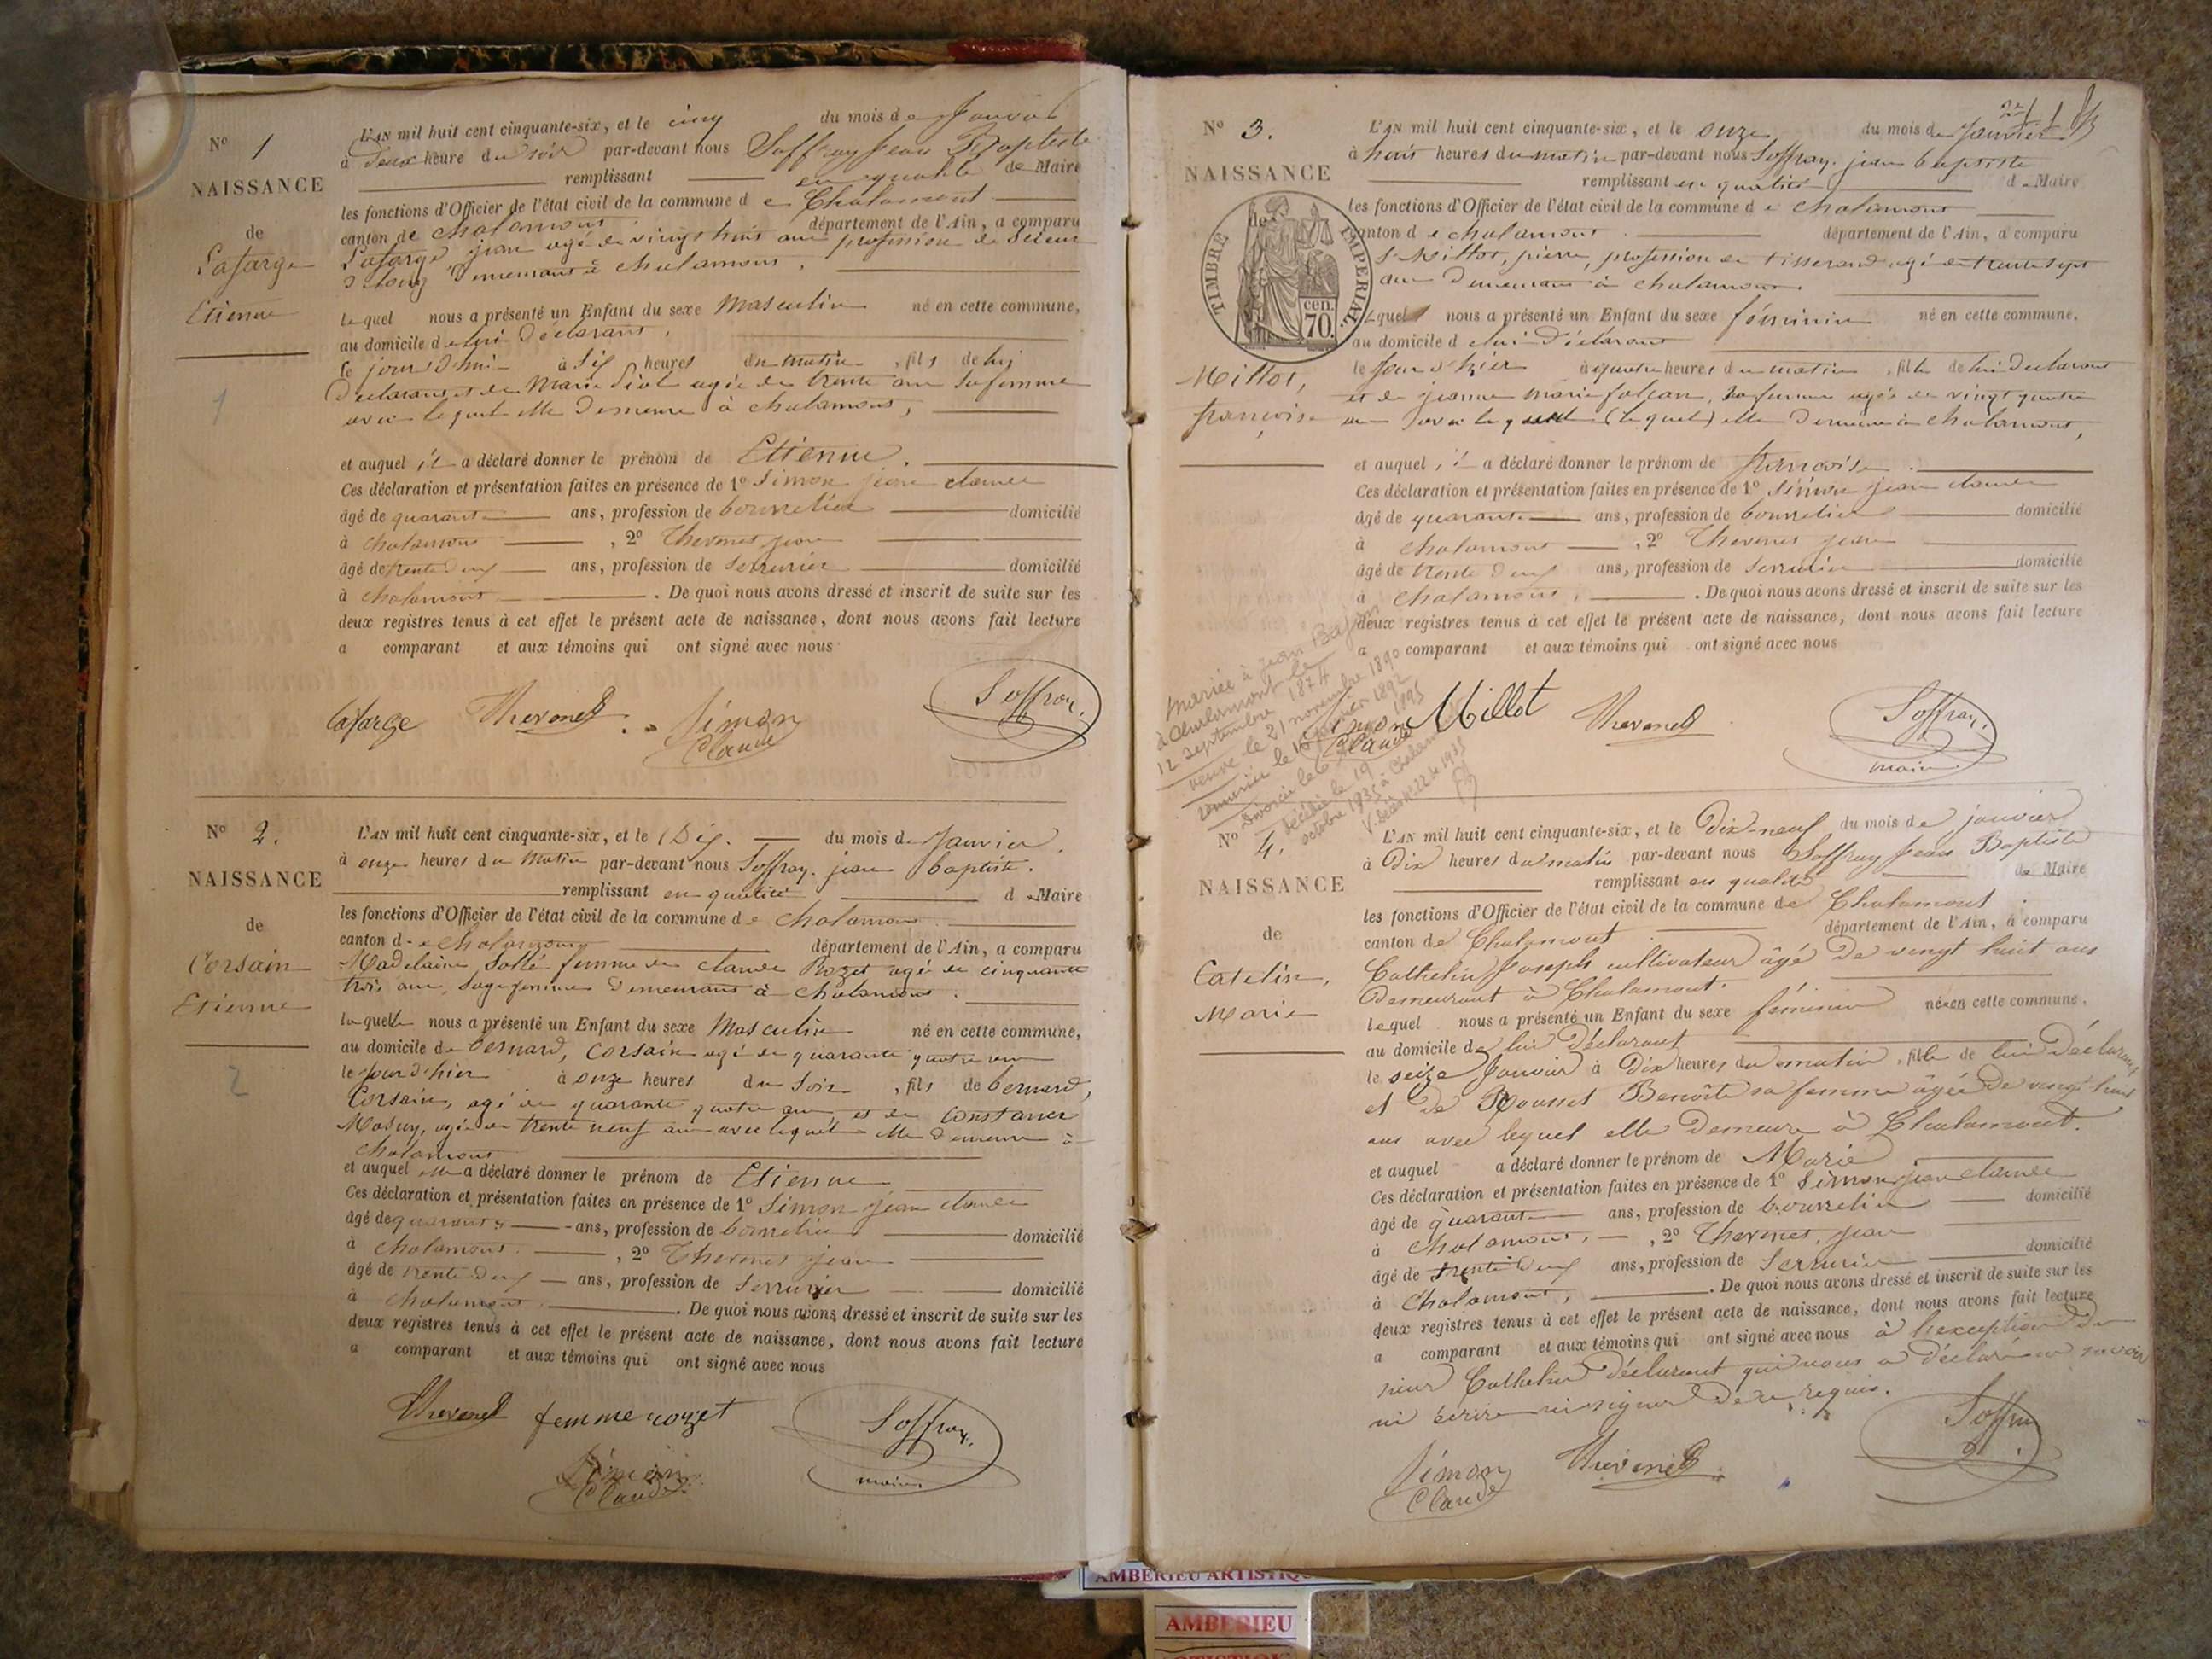 N° 1
NAISSANCE
de
Lafarge
Etienne
1
L'AN mil huit cent cinquante-six, et le cinq du mois de Janvier
à deux heure du soir par-devant nous Soffray Jean Baptiste
remplissant en qualité de Maire
les fonctions d'Officier de l'état civil de la commune de Chalamont
canton de chalamont département de l'Ain, a comparu
Lafarge jean agé de vingt huit ans profession de scieur
de long demeurant à chalamont,
lequel nous a présenté un Enfant du sexe Masculin né en cette commune,
au domicile de lui déclarant,
le jour d'hui à six heures du matin, fils de luj
declarant et de Marie agée de trente ans sa femme
avec lequel elle demeure à chalamont,
et auquel il a déclaré donner le prénom de Etienne.
Ces déclaration et présentation faites en présence de 1° Simon jean claude
âgé de quarante ans, profession de bourrelier domicilié
à chalamont, 2° Thevenet jean
âgé de trente deux ans, profession de Serrurier domicilié
à chalamont. De quoi nous avons dressé et inscrit de suite sur les
deux registres tenus à cet effet le présent acte de naissance, dont nous avons fait lecture
a comparant et aux témoins qui ont signé avec nous
lafarge Thevenet Simon Claude Soffray
N° 2.
NAISSANCE
de
Corsain
Etienne
2
L'AN mil huit cent cinquante-six, et le Dix. du mois de Janvier.
à onze heures du Matin par-devant nous Soffray. jean baptiste.
remplissant en qualité de Maire
les fonctions d'Officier de l'état civil de la commune de chalamont
canton de chalamont département de l'Ain, a comparu
Madelaine femme de claude Rozet agé de cinquante
trois ans, sage femme demeurant à chalamont.
laquelle nous a présenté un Enfant du sexe Masculin né en cette commune,
au domicile de bernard, Corsain agé de quarante quatre ans
le jour d'hier à onze heures du Soir, fils de bernard,
Corsain, agé de quarante quatre ans et de Constance
agée de trente neuf ans avec lequel elle demeure à
chalamont
et auquel elle a déclaré donner le prénom de Etienne
Ces déclaration et présentation faites en présence de 1° Simon jean claude
âgé de quarante ans, profession de bourrelier domicilié
à chalamont. , 2° Thevenet jean
âgé de trente deux ans, profession de Serrurier domicilié
à chalamont. De quoi nous avons dressé et inscrit de suite sur les
deux registres tenus à cet effet le présent acte de naissance, dont nous avons fait lecture
a comparant et aux témoins qui ont signé avec nous
Thevenet femme rozet Soffray.
Simon Claude maire
N° 3.
NAISSANCE
de
TIMBRE IMPERIAL.
70 cen.
Millot,
françoise
L'AN mil huit cent cinquante-six, et le onze du mois de Janvier
à huit heures du matin par-devant nous Soffray. jean baptiste
remplissant en qualité de Maire
les fonctions d'Officier de l'état civil de la commune de chalamont
canton de chalamont. département de l'Ain, a comparu
Millot, pierre, profession de tisserand agé de trente sept
ans demeurant à chalamont.
Lequel nous a présenté un Enfant du sexe féminin né en cette commune.
au domicile de lui Déclarant
le jour d'hier à quatre heures du matin, fille de lui declarant
et de jeanne marie sa femme agée de vingt quatre
ans avec (lequel) elle demeure à chalamont,
et auquel il a déclaré donner le prénom de françoise.
Ces déclaration et présentation faites en présence de 1° Simon jean claude
âgé de quarante ans, profession de bourrelier domicilié
à chalamont, 2° Thevenet jean
âgé de trente deux ans, profession de Serrurier domicilié
à chalamont, . De quoi nous avons dressé et inscrit de suite sur les
deux registres tenus à cet effet le présent acte de naissance, dont nous avons fait lecture
a comparant et aux témoins qui ont signé avec nous
mariée à Jean
à Chalamont le
12 septembre 1874
veuve le 21 novembre 1890
remariée le 1892
divorcée le 6 1895
décédée le 19
octobre 1935 à Chalamont
Simon Claude Millot Thevenet Soffray.
maire
N° 4.
NAISSANCE
de
Catelin,
Marie
L'AN mil huit cent cinquante-six, et le Dix-neuf du mois de janvier
à Dix heures du matin par-devant nous Soffray Jean Baptiste
remplissant en qualité de Maire
les fonctions d'Officier de l'état civil de la commune de Chalamont.
canton de Chalamont département de l'Ain, a comparu
Cathelin Joseph cultivateur âgé De vingt huit ans
Demeurant à Chalamont.
lequel nous a présenté un Enfant du sexe féminin née en cette commune.
au domicile de lui Déclarant
le seize Janvier à Dix heures du matin, fille de lui Déclarant
et de Rousset Benoîte sa femme âgée De vingt huit
ans avec lequel elle Demeure à Chalamont.
et auquel a déclaré donner le prénom de Marie
Ces déclaration et présentation faites en présence de 1° Simon jean claude
âgé de quarante ans, profession de bourrelier domicilié
à chalamont, , 2° Thevenet, jean
âgé de trente deux ans, profession de Serrurier domicilié
à chalamont, . De quoi nous avons dressé et inscrit de suite sur les
deux registres tenus à cet effet le présent acte de naissance, dont nous avons fait lecture
a comparant et aux témoins qui ont signé avec nous à l'exception du
sieur Cathelin Déclarant qui nous a Déclaré ne savoir
ni écrire ni signer De ce requis.
Simon Claude Thevenet Soffray
AMBERIEU ARTISTIQUE
AMBERIEU
ARTISTIQUE